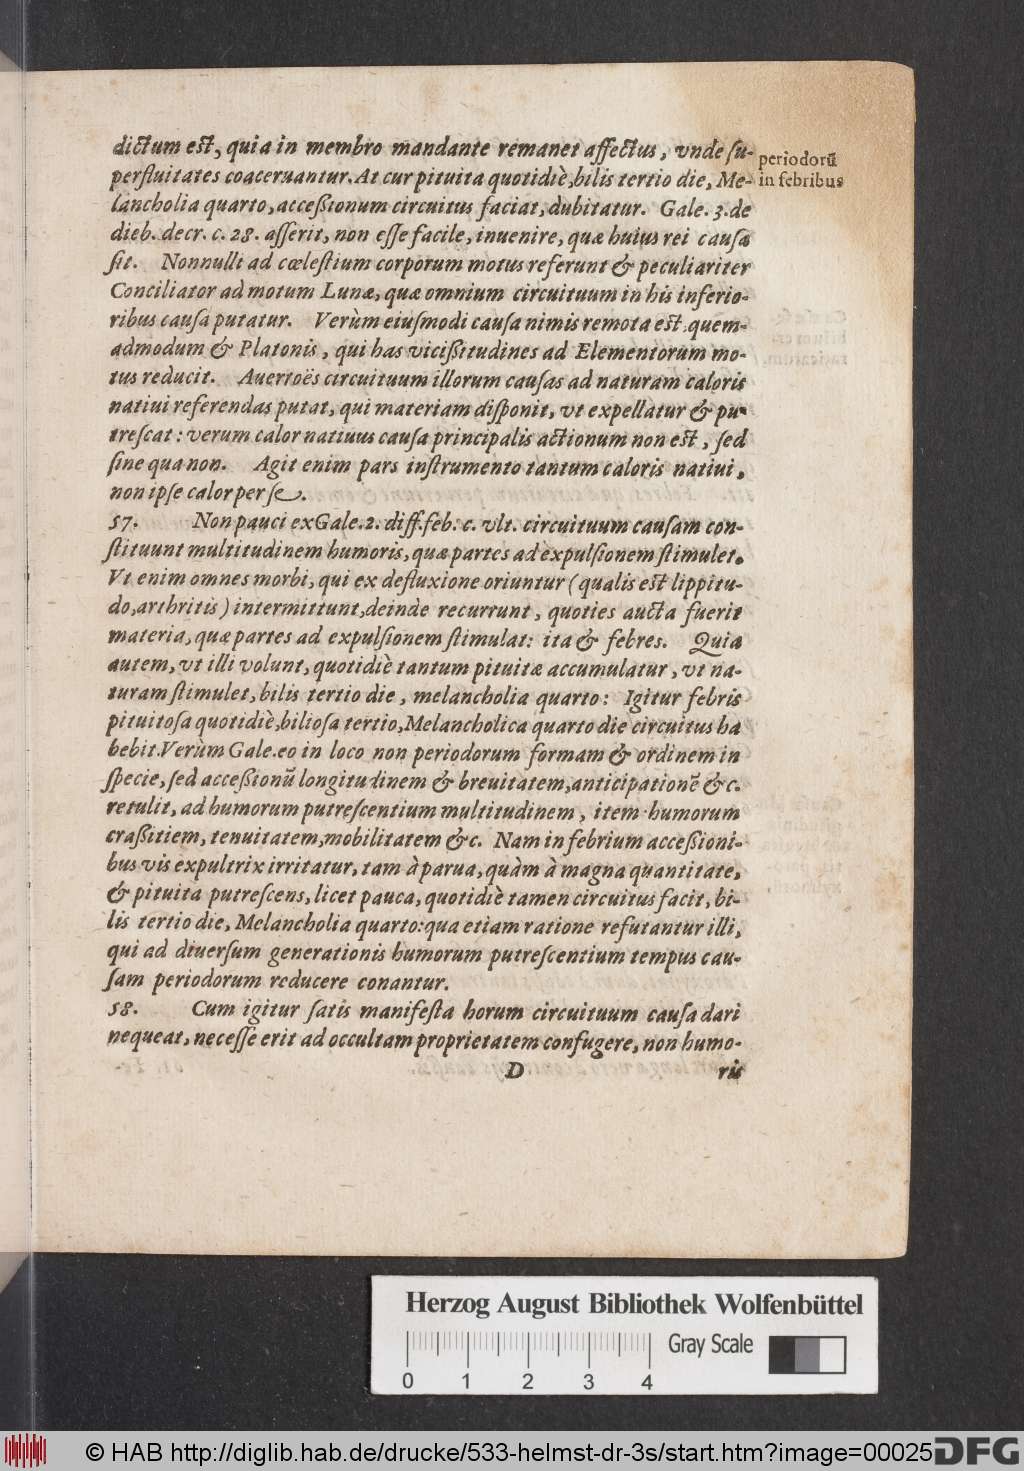 dictum est, quia in membro mandante remanet affectus, vnde su-
perfluitates coaceruantur. At cur pituita quotidiè, bilis tertio die, Me-
lancholia quarto, acceßionum circuitus faciat, dubitatur. Gale. 3. de
dieb. decr. c. 28. asserit, non esse facile, inuenire, quæ huius rei causa
sit. Nonnulli ad cœlestium corporum motus referunt & peculiariter
Conciliator ad motum Lunæ, quæ omnium circuituum in his inferio-
ribus causa putatur. Verùm eiusmodi causa nimis remota est, quem-
admodum & Platonis, qui has vicißitudines ad Elementorum mo-
tus reducit. Auertoës circuituum illorum causas ad naturam caloris
natiui referendas putat, qui materiam disponit, vt expellatur & pu-
trescat: verum calor natiuus causa principalis actionum non est, sed
sine qua non. Agit enim pars instrumento tantum caloris natiui,
non ipse calor per se.
periodorū
in febribus
57. Non pauci ex Gale. 2. diff. feb. c. vlt. circuituum causam con-
stituunt multitudinem humoris, quæ partes ad expulsionem stimulet.
Vt enim omnes morbi, qui ex defluxione oriuntur (qualis est lippitu-
do, arthritis) intermittunt, deinde recurrunt, quoties aucta fuerit
materia, quæ partes ad expulsionem stimulat: ita & febres. Quia
autem, vt illi volunt, quotidiè tantum pituitæ accumulatur, vt na-
turam stimulet, bilis tertio die, melancholia quarto: Igitur febris
pituitosa quotidiè, biliosa tertio, Melancholica quarto die circuitus ha
bebit. Verùm Gale. eo in loco non periodorum formam & ordinem in
specie, sed acceßionū longitudinem & breuitatem, anticipationē & c.
retulit, ad humorum putrescentium multitudinem, item humorum
craßitiem, tenuitatem, mobilitatem & c. Nam in febrium acceßioni-
bus vis expultrix irritatur, tam à parua, quàm à magna quantitate,
& pituita putrescens, licet pauca, quotidiè tamen circuitus facit, bi-
lis tertio die, Melancholia quarto: qua etiam ratione refutantur illi,
qui ad diuersum generationis humorum putrescentium tempus cau-
sam periodorum reducere conantur.
58. Cum igitur satis manifesta horum circuituum causa dari
nequeat, necesse erit ad occultam proprietatem confugere, non humo-
D ris
Herzog August Bibliothek Wolfenbüttel
Gray Scale
0 1 2 3 4
© HAB http://diglib.hab.de/drucke/533-helmst-dr-3s/start.htm?image=00025
DFG